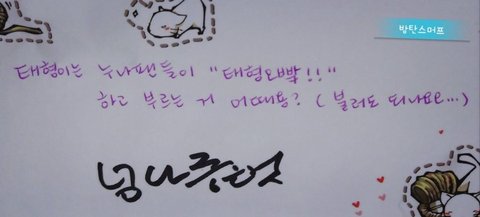 방탄스머프
태형이는 누나팬들이 "태형오빠!!"
하고 부르는 거 어때용? (불러도 되나요...)
넘나좋은것